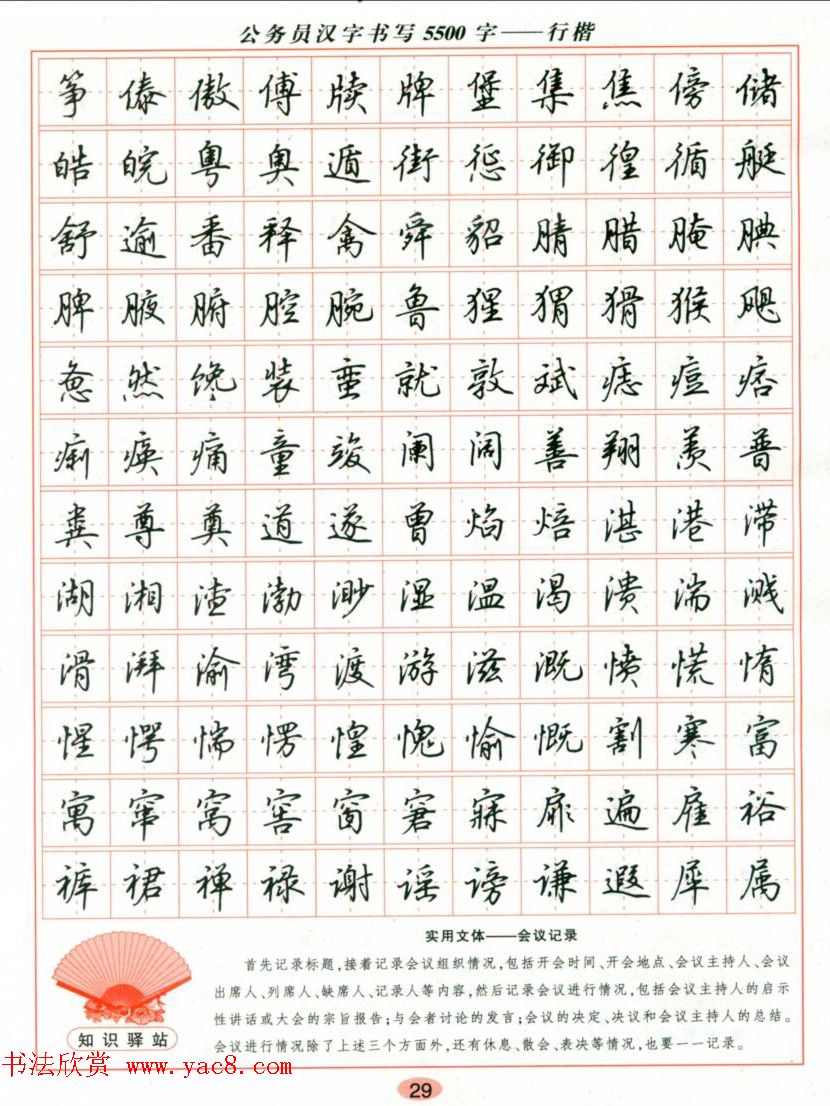 公务员汉字书写5500字——行楷
筝傣傲傅牍牌堡集焦傍储
皓皖粤奥遁街惩御徨循艇
舒逾番释禽舜貂腈腊腌腆
脾腋腑腔腕鲁猩猬猾猴飓
惫然馋装蛮就敦斌痣痘痞
痢痪痛童竣阑阔善翔羡普
粪尊奠道遂曾焰焙湛港滞
湖湘渣渤渺湿温渴溃湍溅
滑湃渝湾渡游滋溉愤慌惰
惺愕惴愣惶愧愉慨割寒富
寓窜窝窖窗窘寐扉遍雇裕
裤裙禅禄谢谣谤谦遐犀属
实用文体——会议记录
首先记录标题,接着记录会议组织情况,包括开会时间、开会地点、会议主持人、会议
出席人、列席人、缺席人、记录人等内容,然后记录会议进行情况,包括会议主持人的启示
性讲话或大会的宗旨报告;与会者讨论的发言;会议的决定、决议和会议主持人的总结。
会议进行情况除了上述三个方面外,还有休息、散会、表决等情况,也要一一记录。
知识驿站
书法欣赏 www.yac8.com
29